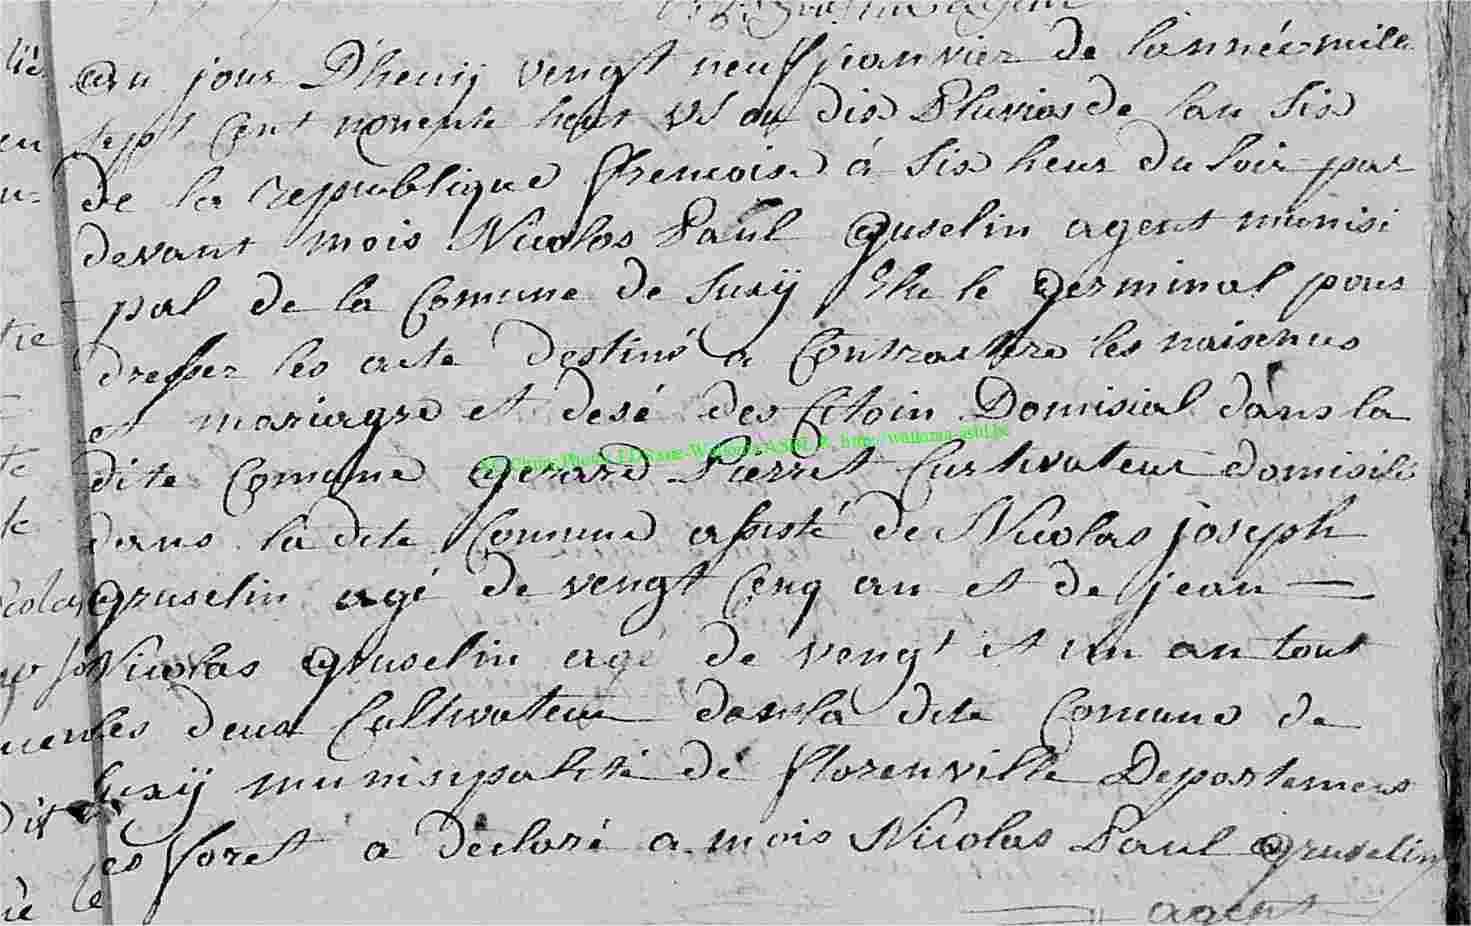 Au jour D'heuij vengt neuf janvier de lannée mile
sept Cent novente heut VS ou dix Pluvios de lan Six
de la republique ffrencoise à six heur du soir par
devant mois Nicolas Paul Gruselin agent munisi
pal de la Comune de Suxÿ Elu le germinal pour
dresser les acte destiné a Contractere les naisences
et mariagre et desé des Citoin Domisial dans la
dite Comune gerard Pierret Curtivateur domisile
dans la dite Comune assisté de Nicolas joseph
gruselin agé de vengt Cenq an et de jean —
Nicolas gruselin agé de vengt et un an tout
les deux Cultivateur dans la dite Comune de
Suxÿ munisipalité de florenville Departement
des foret a déclaré a mois Nicolas Paul gruselin
agent